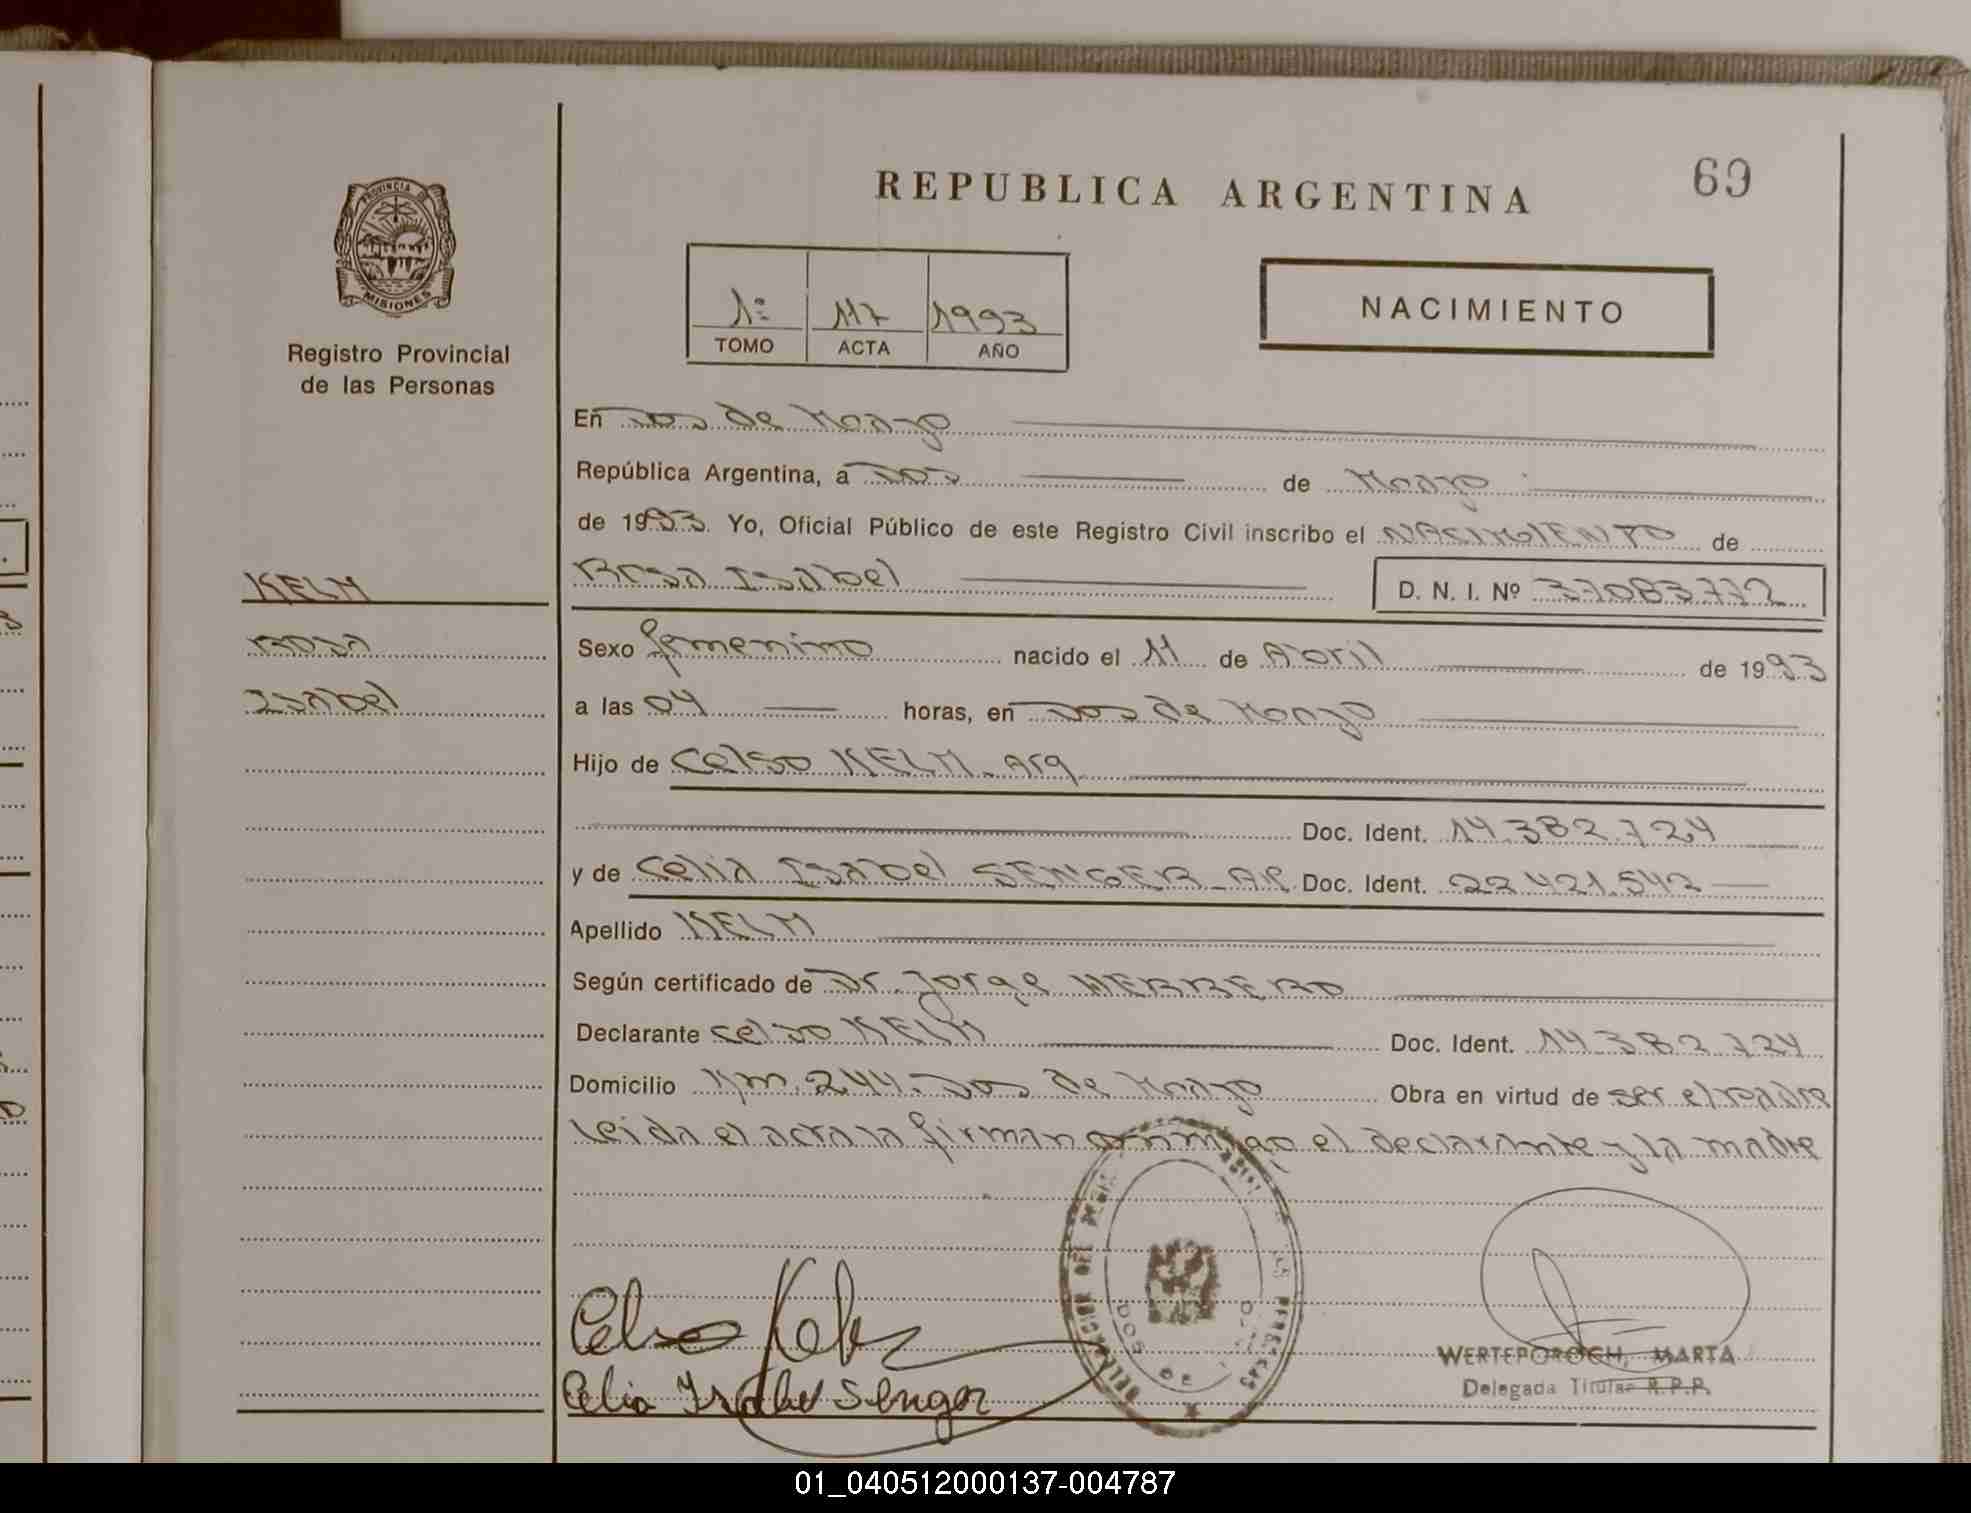 REPUBLICA ARGENTINA
69
PROVINCIA DE
MISIONES
Registro Provincial
de las Personas
1º 117 1993
TOMO ACTA AÑO
NACIMIENTO
En Dos de Mayo
República Argentina, a Dos de Mayo
de 1993. Yo, Oficial Público de este Registro Civil inscribo el NACIMIENTO de
Rosa Isabel D. N. I. Nº 37083772
KELM
Rosa
Isabel
Sexo femenino nacido el 11 de Abril de 1993
a las 04 horas, en Dos de Mayo
Hijo de Celso KELM. Arg
Doc. Ident. 14.382.724
y de Celia Isabel SENGER - AR. Doc. Ident. 22.421.542
Apellido KELM
Según certificado de Dr. Jorge
Declarante Celso KELM Doc. Ident. 14.382.724
Domicilio Km. 244. Dos de Mayo Obra en virtud de ser el padre
Leida el acta la firman conmigo el declarante y la madre
Celso Kelm
Celia Isabel Senger
DELEGACION DEL PERSONAS
DOS DE MAYO
WERTEPOROCH, MARTA
Delegada Titular R.P.P.
01_040512000137-004787